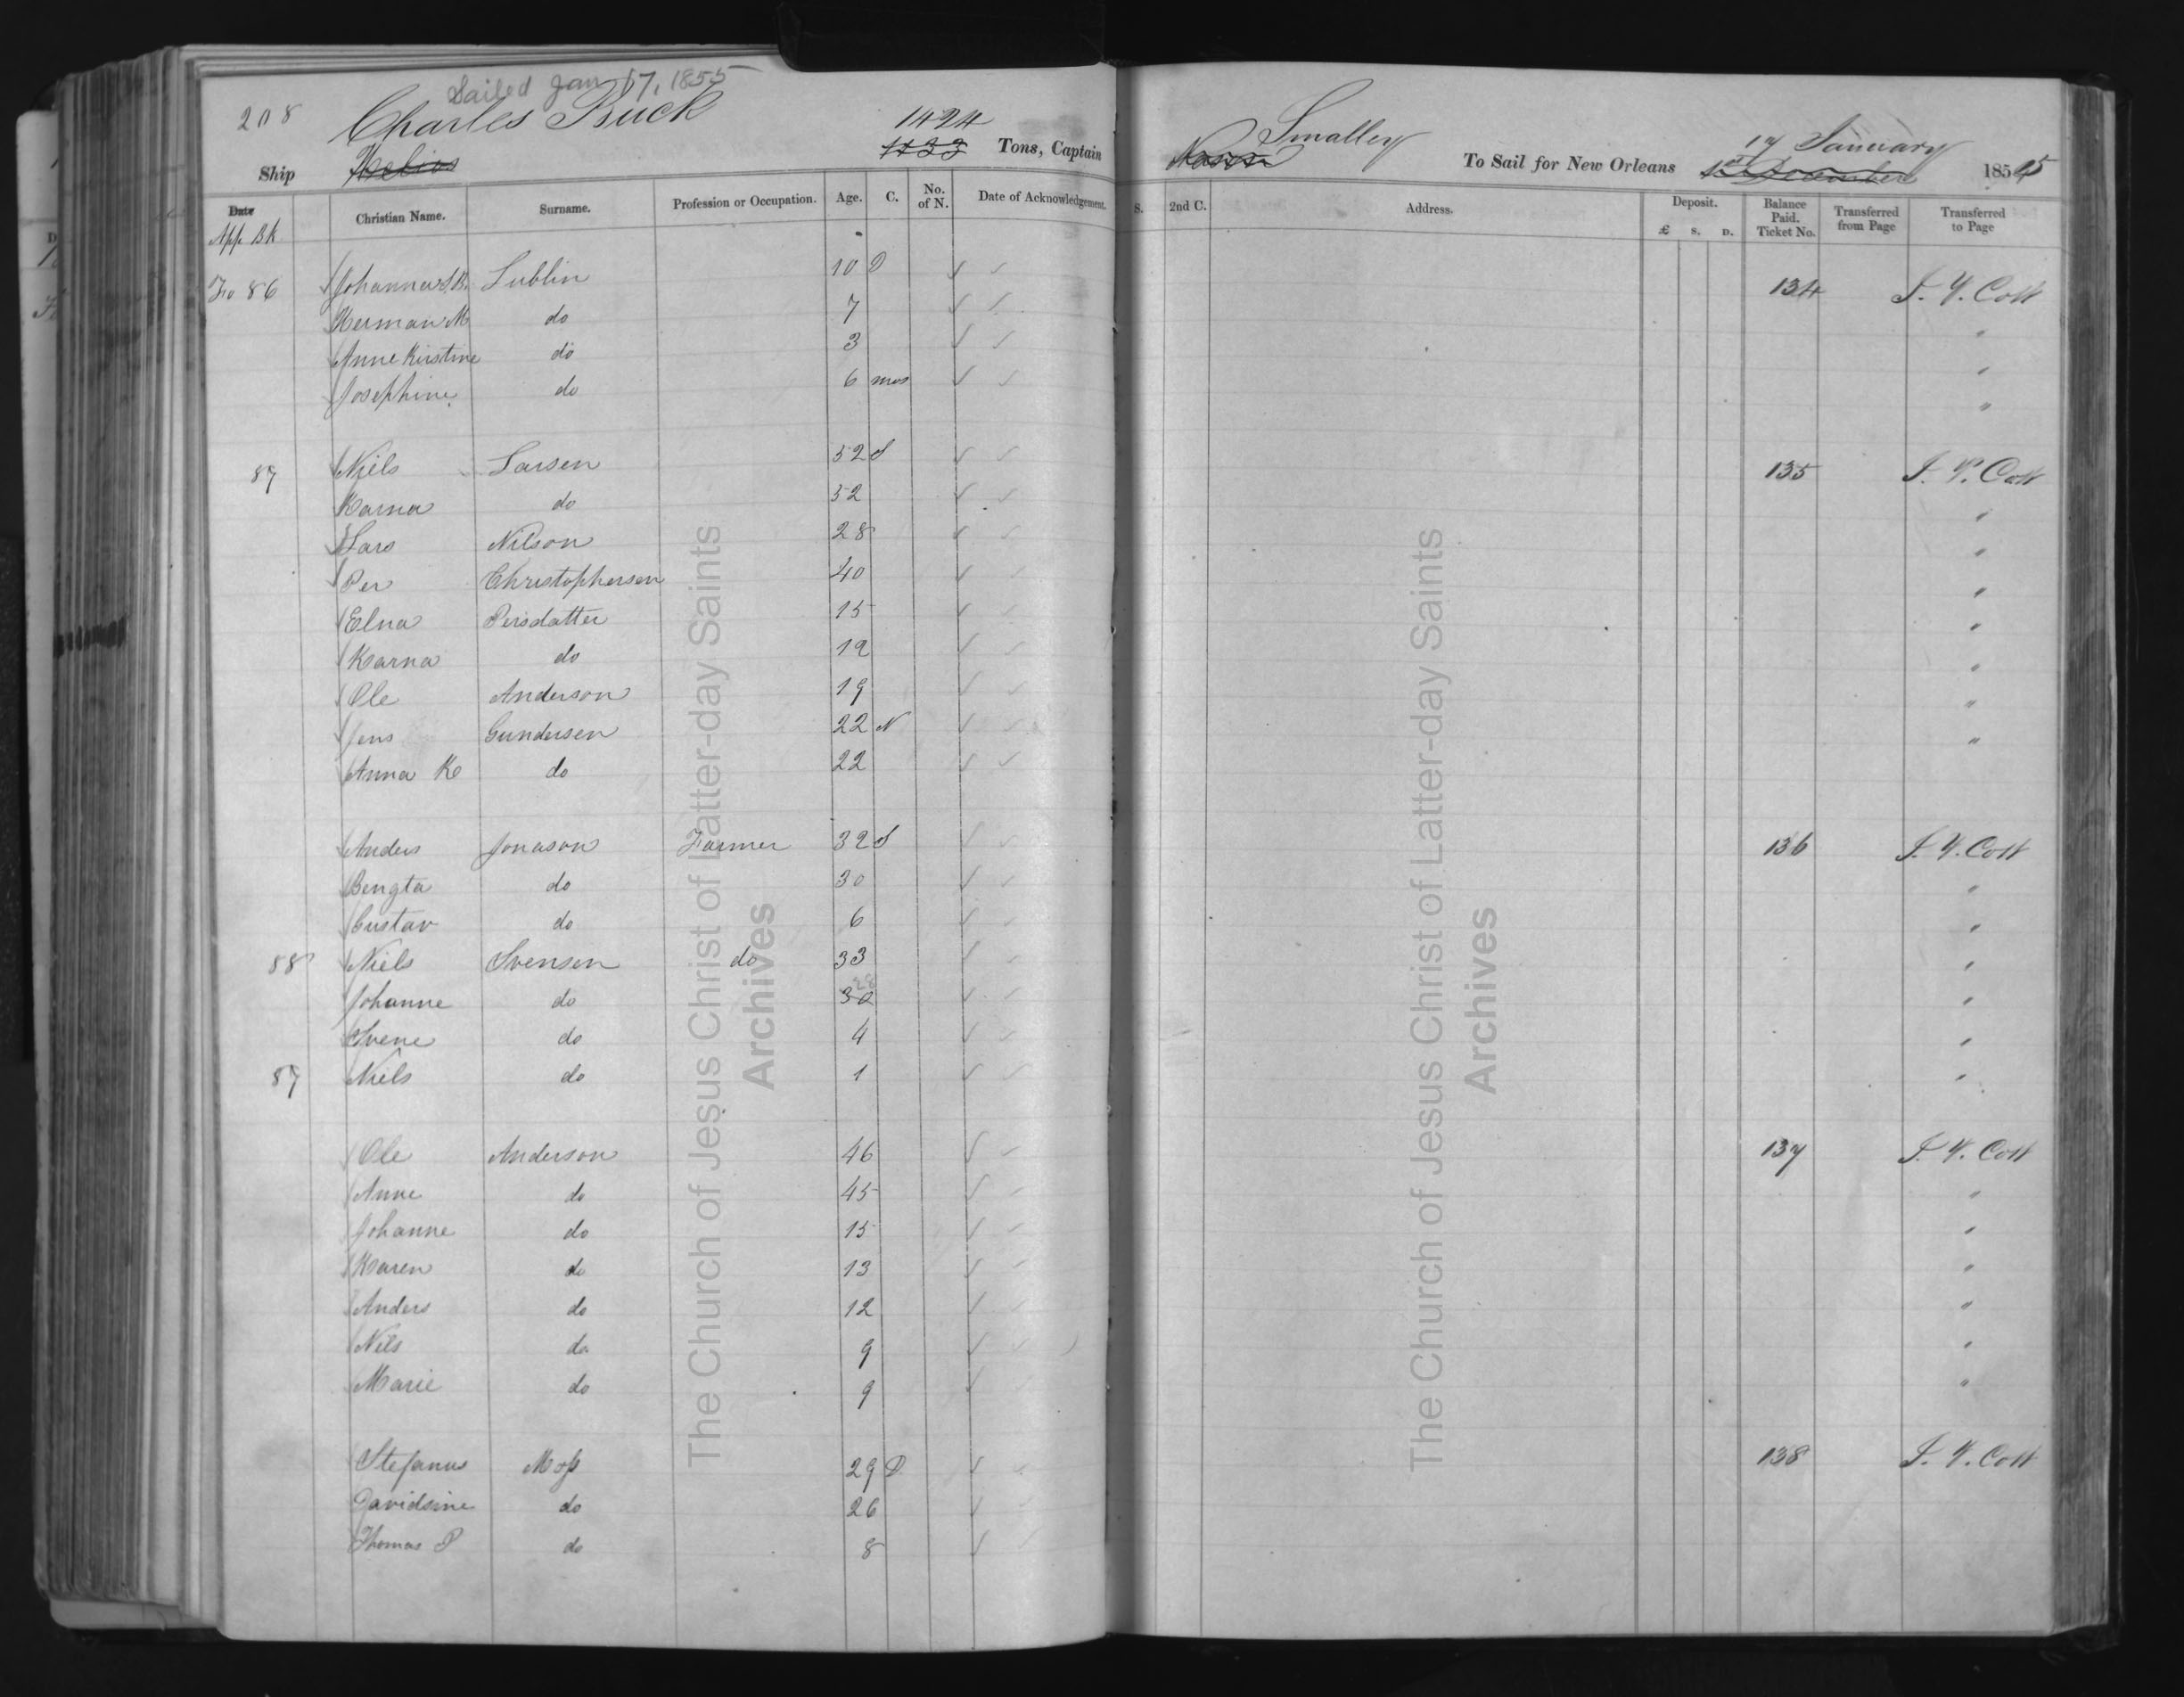 Sailed Jan 17, 1855
208 Charles Buck 1424 Smalley 17 January
Ship Helios 1133 Tons, Captain To Sail for New Orleans 1st December 1855
Date Christian Name. Surname. Profession or Occupation. Age. C. No. of N. Date of Acknowledgement. S. 2nd C. Address. Deposit. £ s. D. Balance Paid. Ticket No. Transferred from Page Transferred to Page
App BK
Fo 86 Johanna Lublin 10 D 134 Cott
Herman M do 7 "
Anne Kirstine do 3 "
Josephine do 6 mos "
87 Niels Larsen 52 S 135 Cott
Karna do 52 "
Lars Nilson 28 "
Per Christophersen 40 "
Elna Persdatter 15 "
Karna do 12 "
Ole Anderson 19 "
Jens Gundersen 22 N "
Anna K do 22
Anders Jonason Farmer 32 S 136 Cott
Bengta do 30 "
Gustav do 6 "
88 Niels Svensen do 33 "
Johanne do 30 28 "
Svene do 4 "
87 Niels do 1 "
Ole Anderson 46 137 Cott
Anne do 45 "
Johanne do 15 "
Karen do 13 "
Anders do 12 "
Nils do 9 "
Marie do 9 "
Stefanus Moss 29 D 138 Cott
Davidsine do 26
Thomas P do 8
The Church of Jesus Christ of Latter-day Saints
Archives
The Church of Jesus Christ of Latter-day Saints
Archives